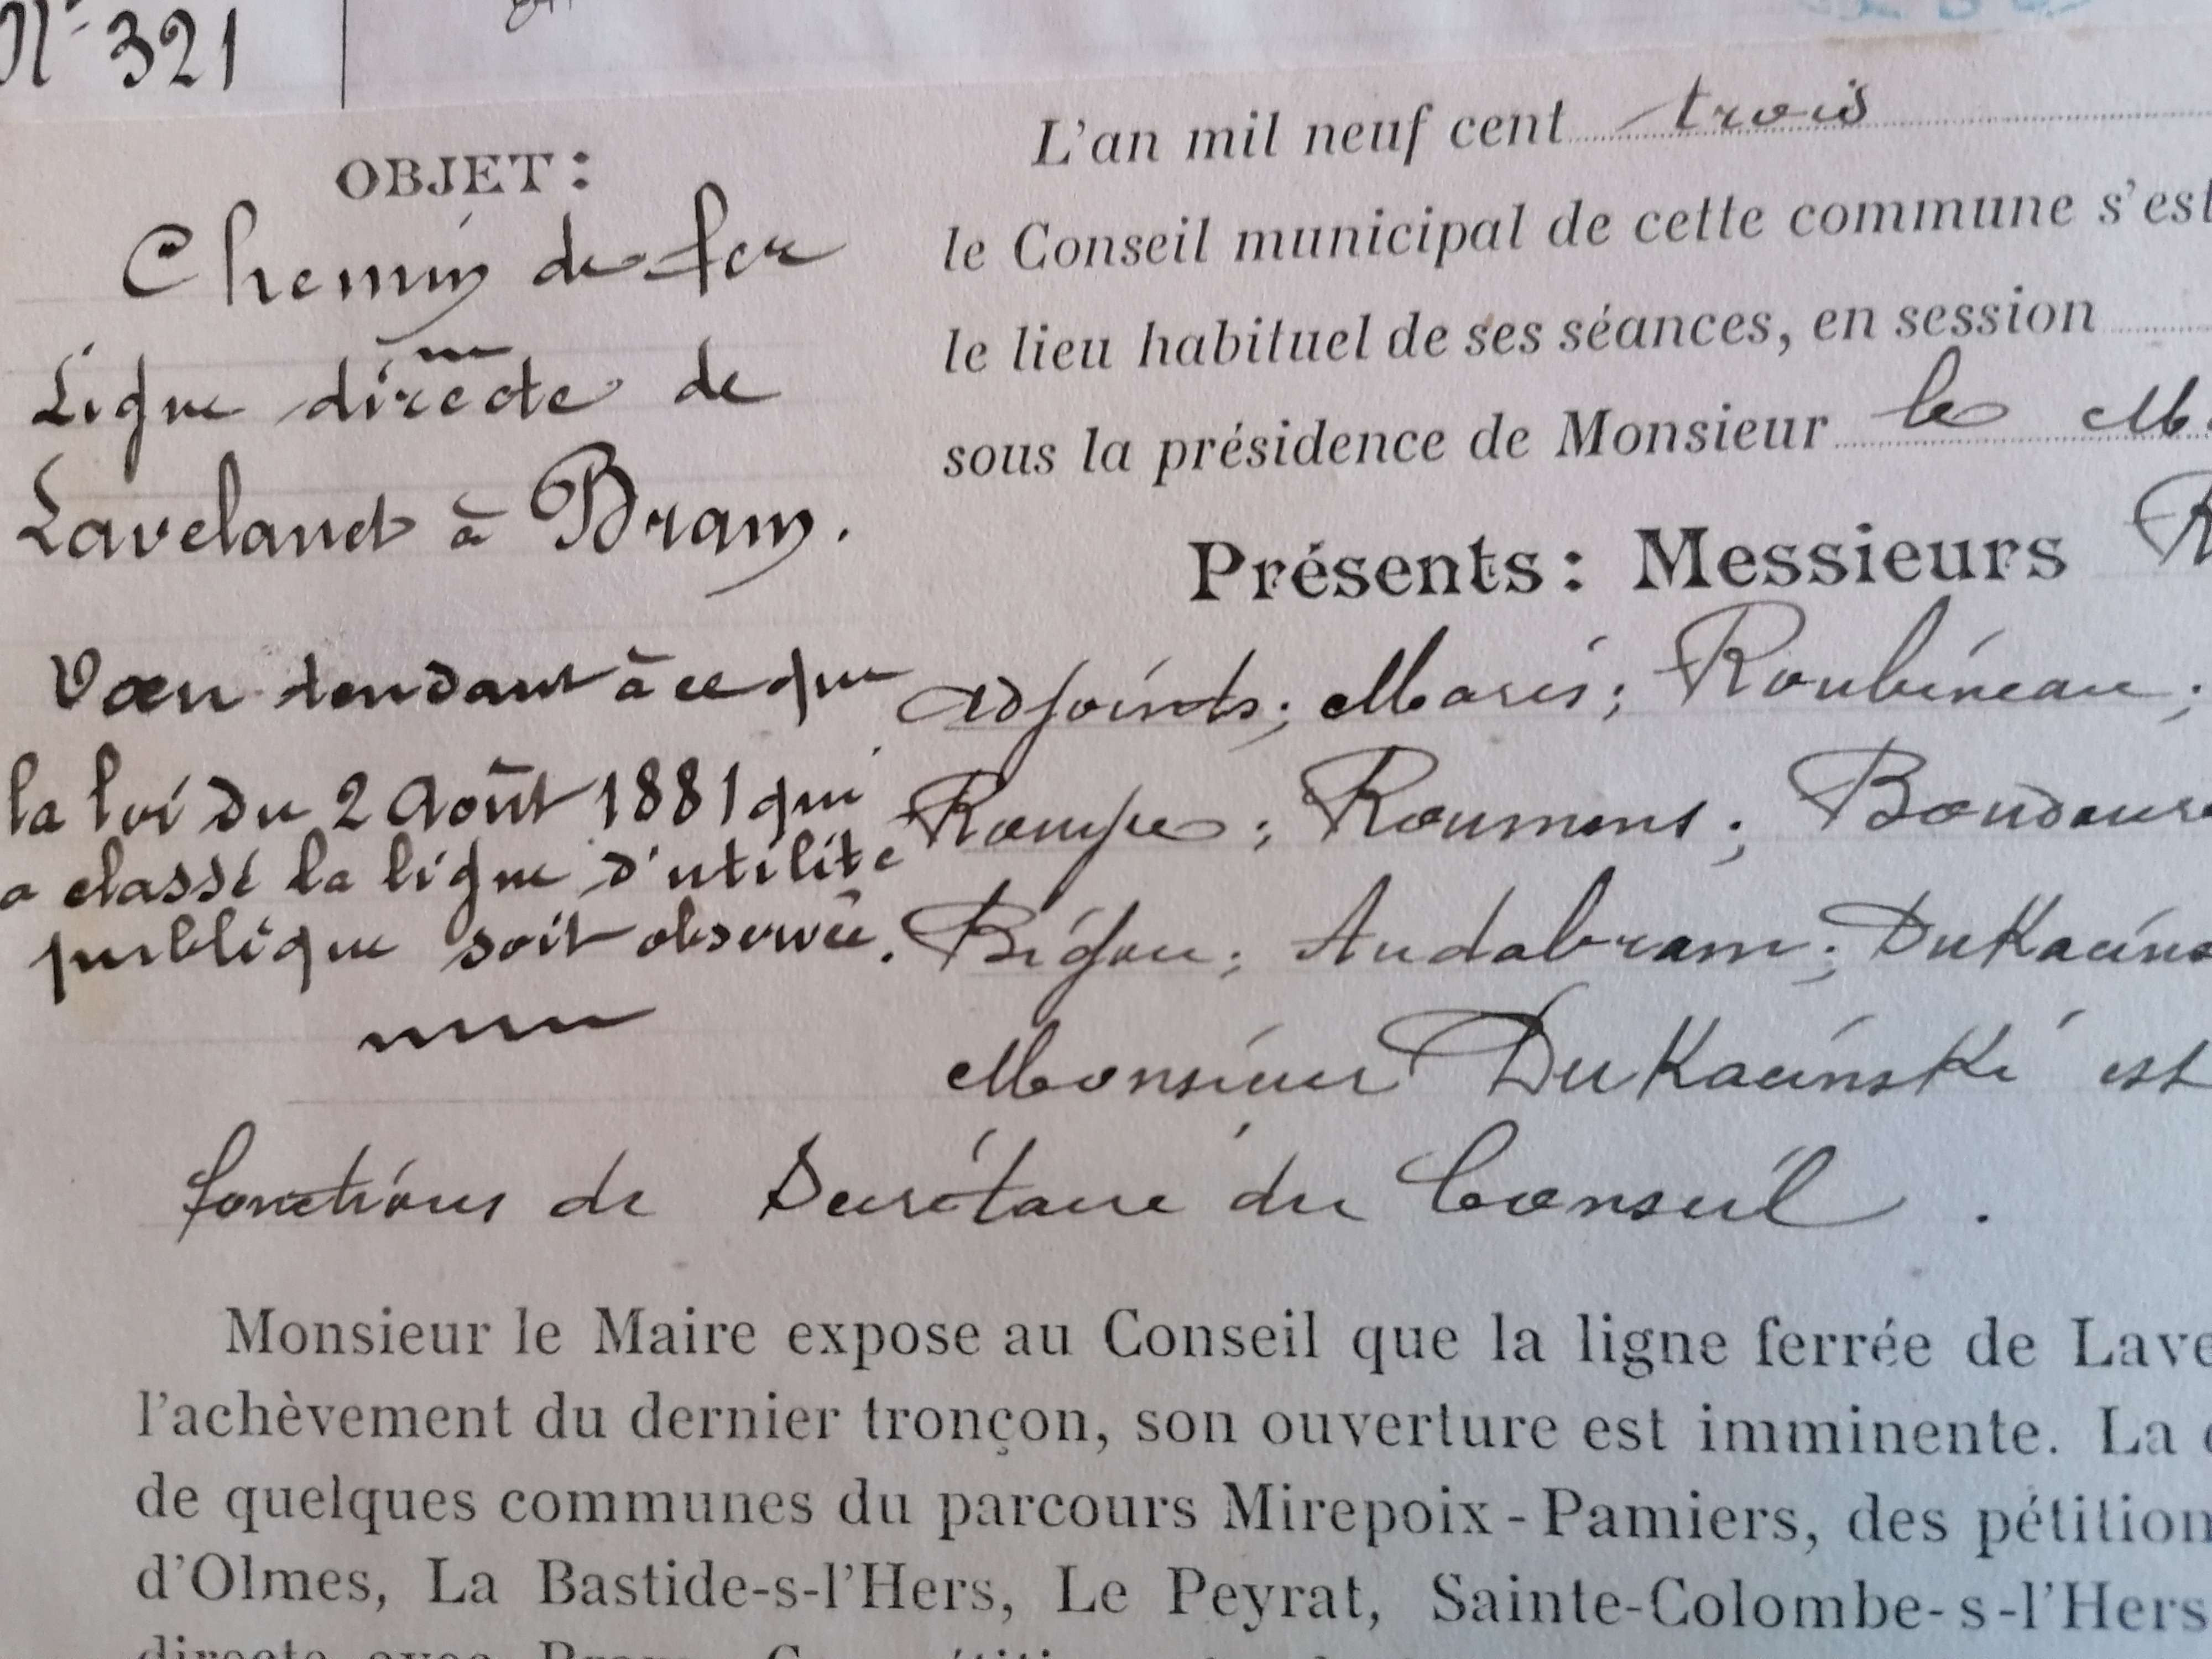 N° 321
OBJET :
Chemin de fer
Ligne directe de
Lavelanet à Bram.
Vœu tendant à ce que
la loi du 2 Août 1881 qui
a classé la ligne d'utilité
publique soit observée.
L'an mil neuf cent trois
le Conseil municipal de cette commune s'est
le lieu habituel de ses séances, en session
sous la présidence de Monsieur le M
Présents : Messieurs R
adjoints ; Maris ; Roubineau ;
Rampe ; Roumens ; Boudour
Bigou ; Audabram ; Dukacins
Monsieur Dukacinski est
fonctions de Secrétaire du Conseil .
Monsieur le Maire expose au Conseil que la ligne ferrée de Lave
l'achèvement du dernier tronçon, son ouverture est imminente. La
de quelques communes du parcours Mirepoix - Pamiers, des pétition
d'Olmes, La Bastide-s-l'Hers, Le Peyrat, Sainte-Colombe-s-l'Hers
directe avec Bram.